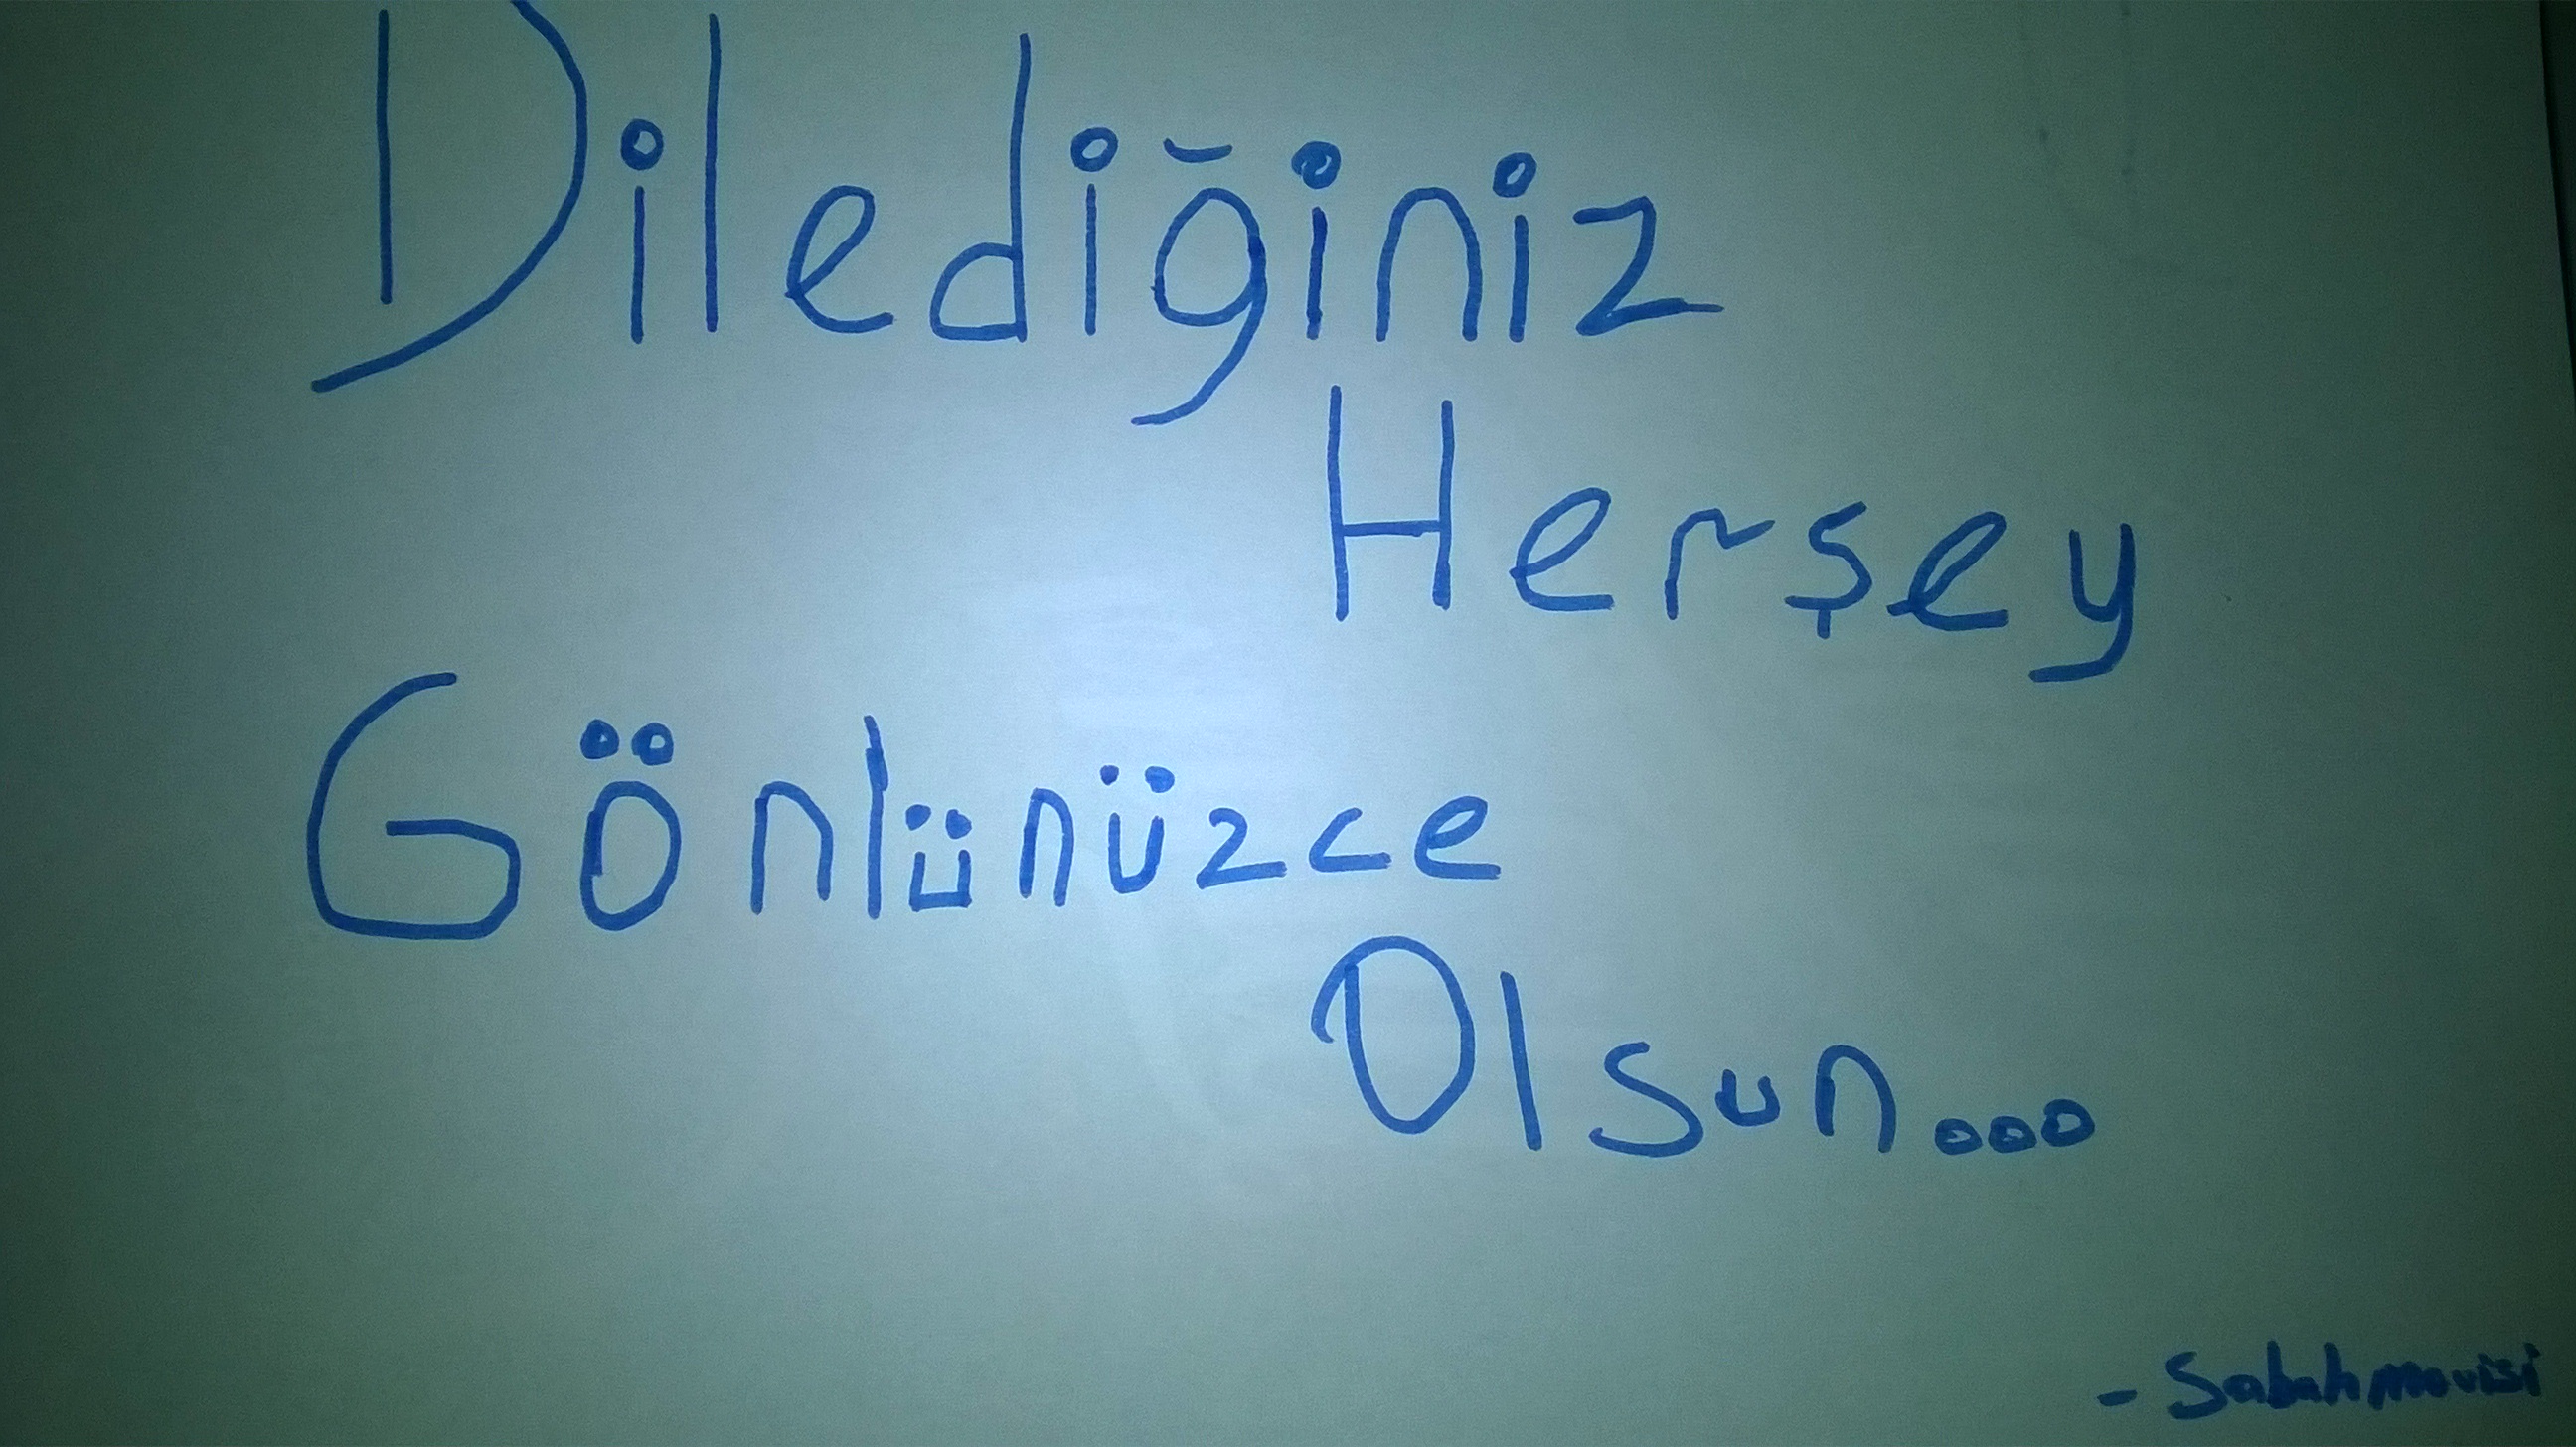 Dilediğiniz
Herşey
Gönlünüzce
Olsun...
- Sabahmavisi